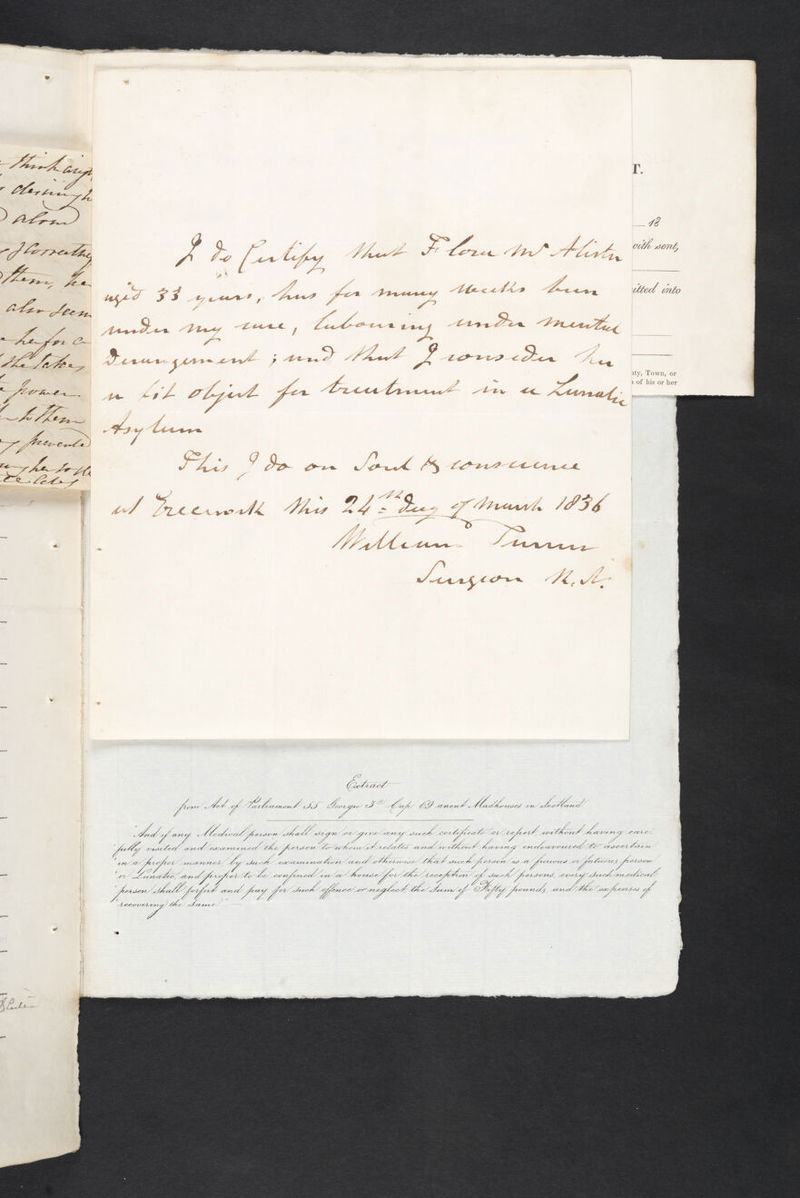 think
alone
them, he
also seem
she takes
power
to them
prevents
T.
18
with sent,
itted into
nty, Town, or
n of his or her
I do Certify that Flora McAlister
aged 33 years, has for many weeks been
under my care, labouring under mental
Derangement; and that I consider her
a fit object for treatment in a Lunatic
Asylum
This I do on Soul & conscience
at this 24th day of March 1836
William Turner
Surgeon R.N.
Extract
from Act of Parliament 55 George 3d Cap 69 anent Madhouses in Scotland
"And if any Medical person shall sign or give any such certificate or report without having care
"fully visited and examined the person to whom it relates and without having endeavoured to ascertain
"in a proper manner by such examination and otherwise that such person is a furious or fatuous person
"or Lunatic and proper to be confined in a house for the reception of such persons, every such medical
"person shall forfeit and pay for such offence or neglect the Sum of Fifty pounds and the expenses of
"recovering the same"